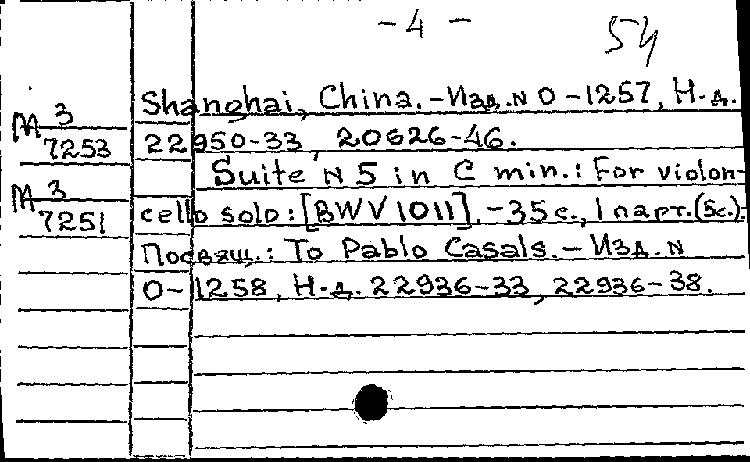 - 4 -
54
Shanghai, China. - Изд. N O-1257, Н.д.
М 3/7253 22950-33, 20626-46.
Suite N 5 in C min.: For violon-
М 3/7251 cello solo: [BWV 1011]. - 35 с., 1 парт. (5с.).
Посвящ.: To Pablo Casals. - Изд. N
O-1258, Н.д. 22936-33, 22936-38.